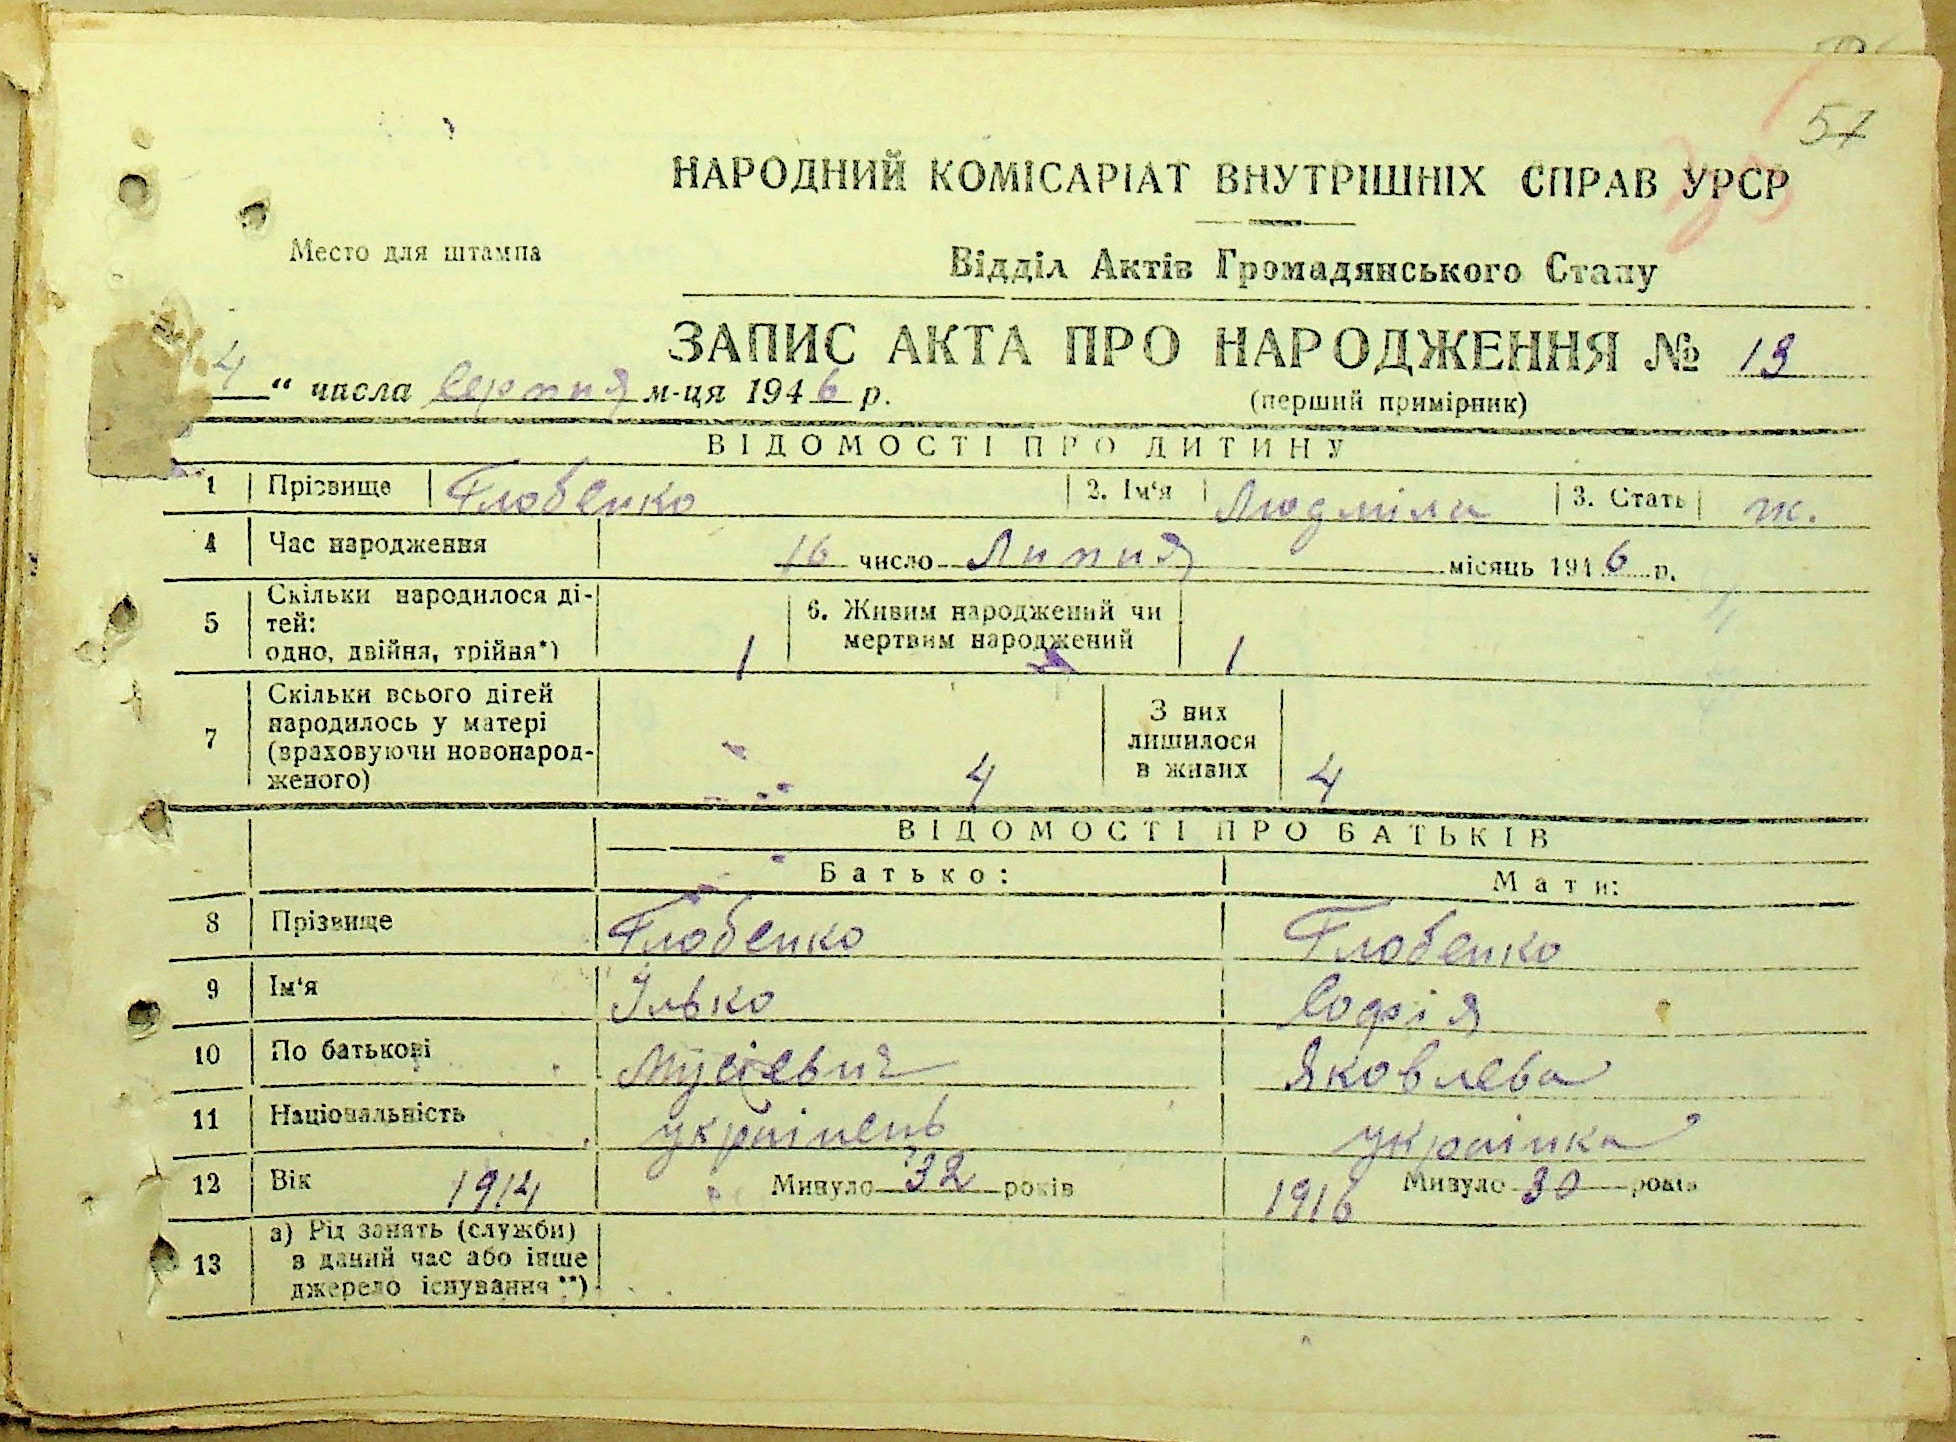 57
НАРОДНИЙ КОМІСАРІАТ ВНУТРІШНІХ СПРАВ УРСР
Место для штампа
Відділ Актів Громадянського Стану
ЗАПИС АКТА ПРО НАРОДЖЕННЯ № 19
4 “ числа серпня м-ця 1946 р.
(перший примірник)
ВІДОМОСТІ ПРО ДИТИНУ
1 Прізвище Глобенко 2. Ім‘я Людміла 3. Стать ж.
4 Час народження 16 число Липня місяць 1946 р.
5 Скільки народилося ді-
тей:
одно, двійня, трійня*) 1
6. Живим народжений чи
мертвим народжений 1
7 Скільки всього дітей
народилось у матері
(враховуючи новонарод-
женого) 4
З них
лишилося
в живих 4
ВІДОМОСТІ ПРО БАТЬКІВ
Батько: Мати:
8 Прізвище Глобенко Глобенко
9 Ім‘я Ілько Софія
10 По батькові Мусієвич Яковлева
11 Національність українець українка
12 Вік 1914 Минуло 32 років 1916 Минуло 30 років
13 а) Рід занять (служби)
в даний час або інше
джерело існування **)